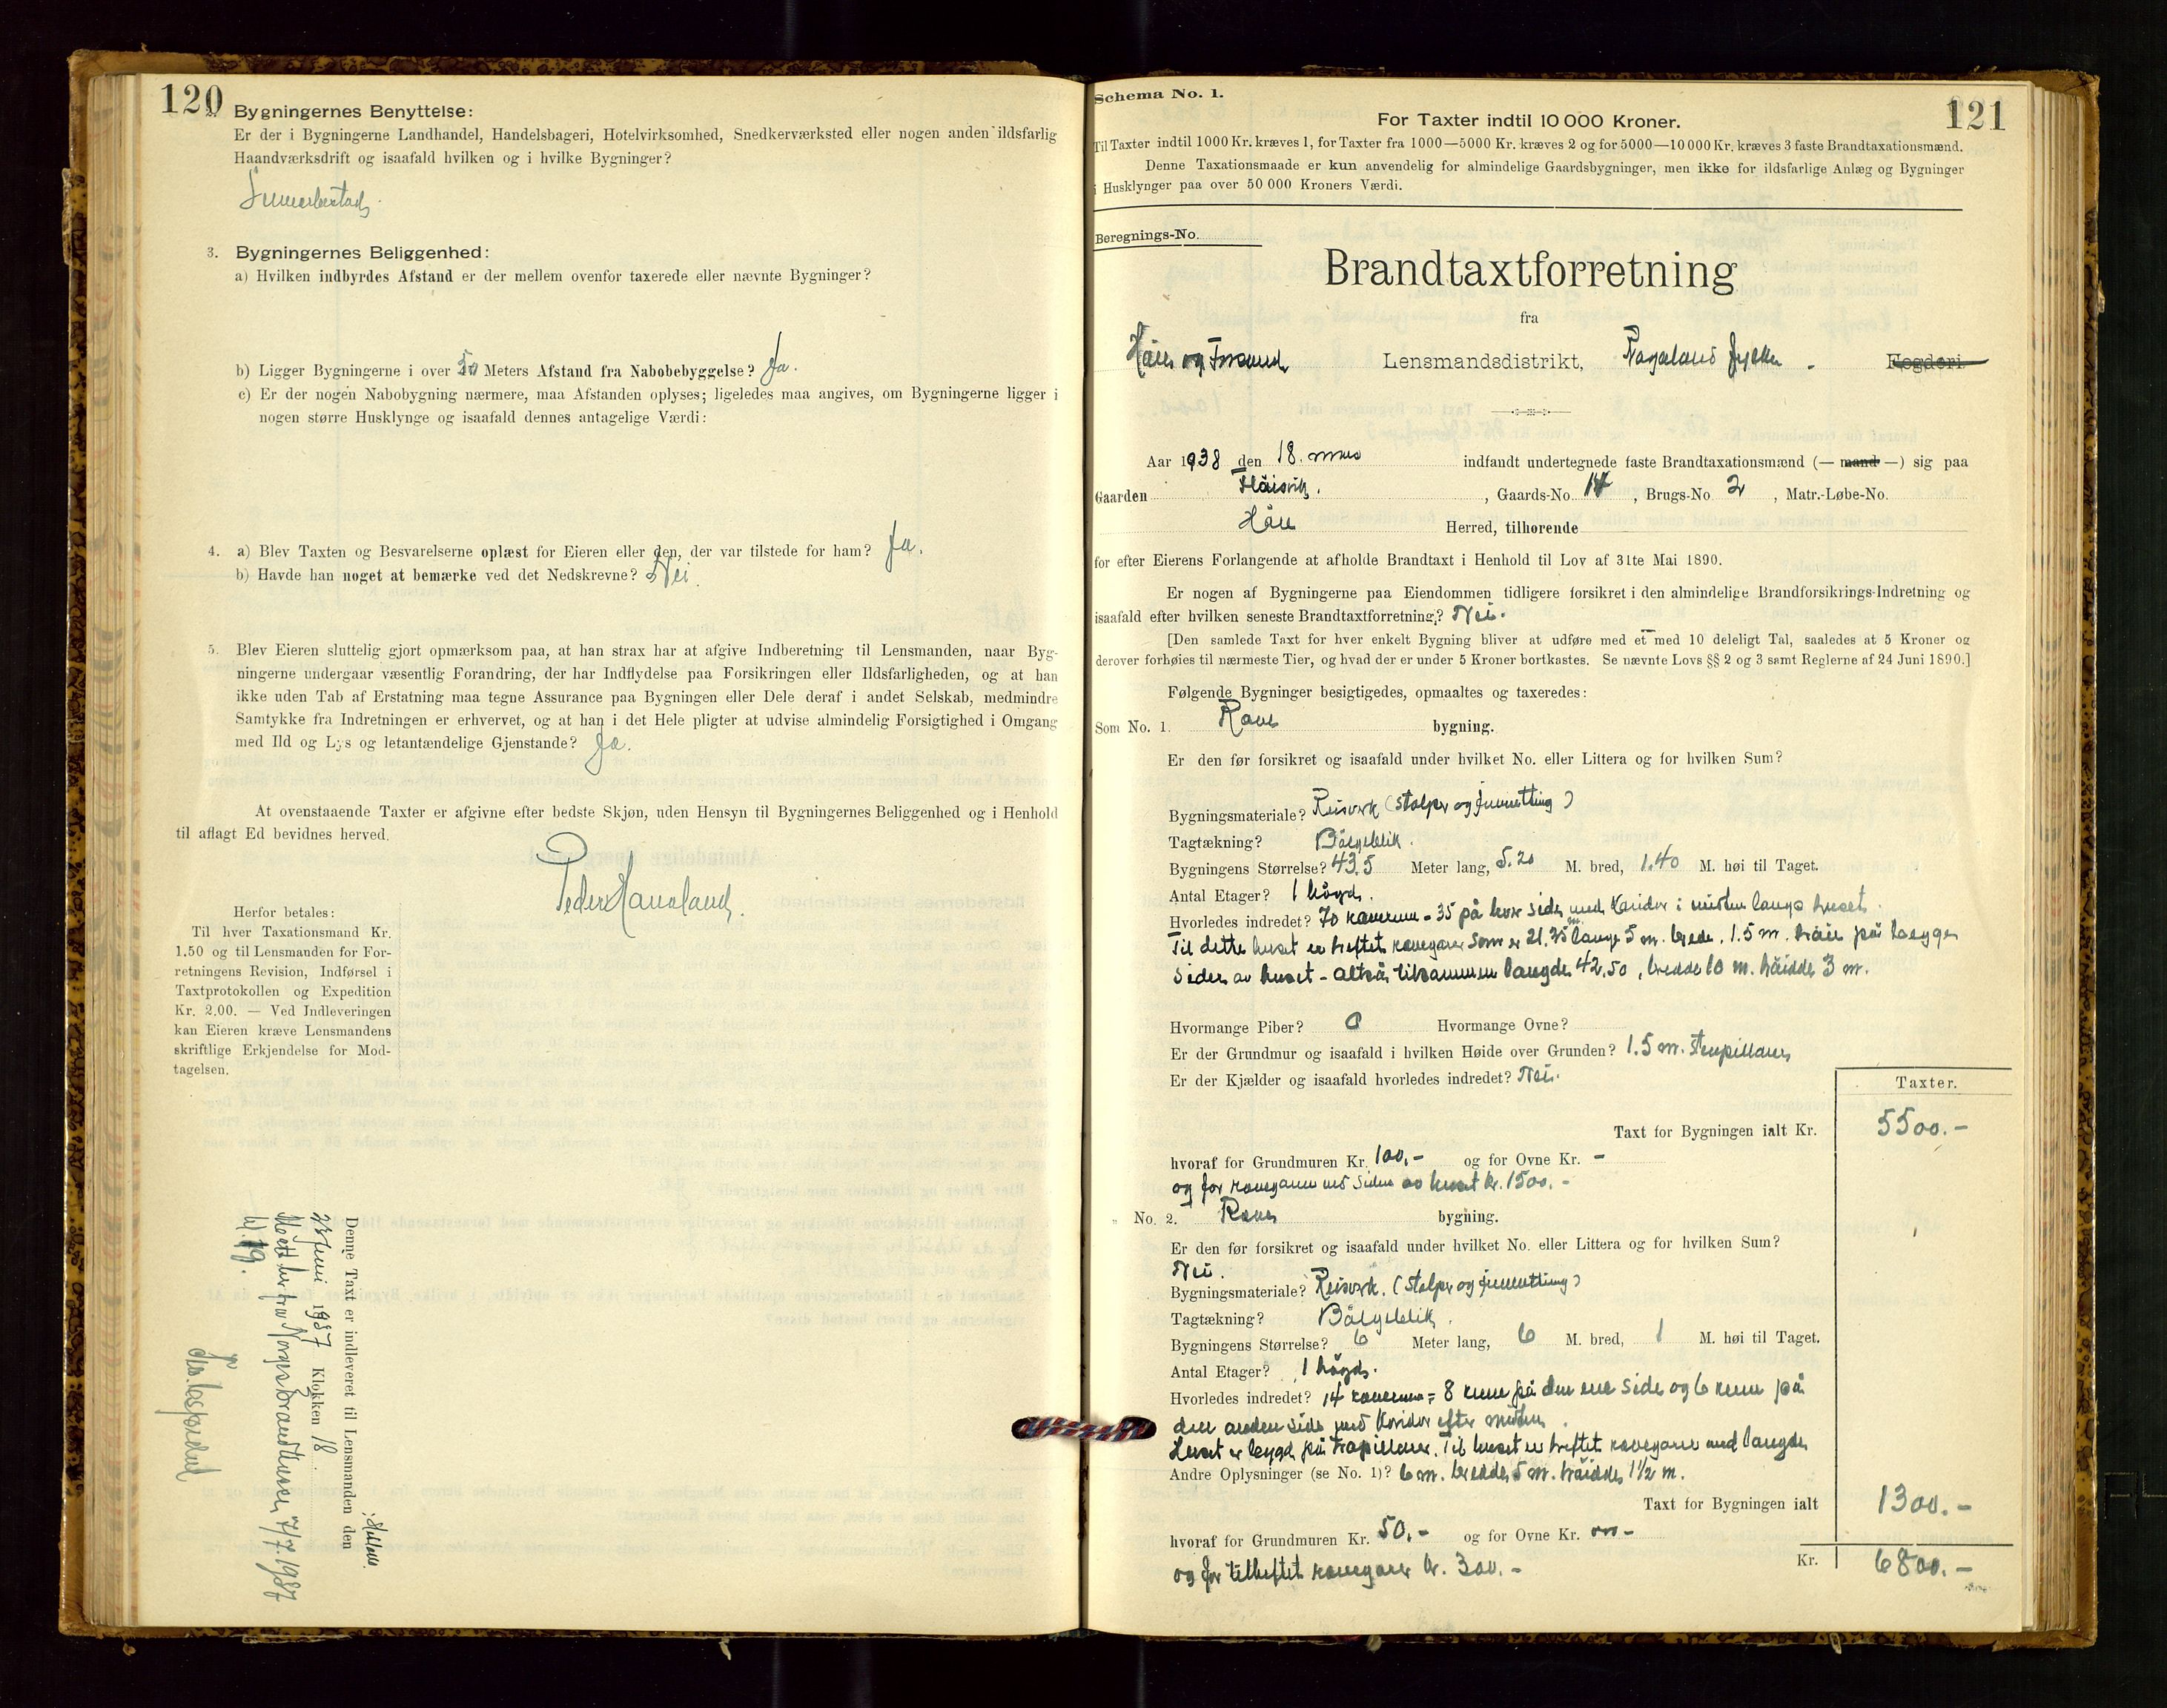 120
2. Bygningernes Benyttelse:
Er der i Bygningerne Landhandel, Handelsbageri, Hotelvirksomhed, Snedkerværksted eller nogen anden ildsfarlig
Haandværksdrift og isaafald hvilken og i hvilke Bygninger?
3. Bygningernes Beliggenhed:
a) Hvilken indbyrdes Afstand er der mellem ovenfor taxerede eller nævnte Bygninger?
b) Ligger Bygningerne i over 50 Meters Afstand fra Nabobebyggelse? Ja.
c) Er der nogen Nabobygning nærmere, maa Afstanden oplyses; ligeledes maa angives, om Bygningerne ligger i
nogen større Husklynge og isaafald dennes antagelige Værdi:
4. a) Blev Taxten og Besvarelserne oplæst for Eieren eller den, der var tilstede for ham? Ja.
b) Havde han noget at bemærke ved det Nedskrevne? Nei.
5. Blev Eieren sluttelig gjort opmærksom paa, at han strax har at afgive Indberetning til Lensmanden, naar Byg-
ningerne undergaar væsentlig Forandring, der har Indflydelse paa Forsikringen eller Ildsfarligheden, og at han
ikke uden Tab af Erstatning maa tegne Assurance paa Bygningen eller Dele deraf i andet Selskab, medmindre
Samtykke fra Indretningen er erhvervet, og at han i det Hele pligter at udvise almindelig Forsigtighed i Omgang
med Ild og Lys og letantændelige Gjenstande? Ja.
At ovenstaaende Taxter er afgivne efter bedste Skjøn, uden Hensyn til Bygningernes Beliggenhed og i Henhold
til aflagt Ed bevidnes herved.
Peder Haualand.
Herfor betales:
Til hver Taxationsmand Kr.
1.50 og til Lensmanden for For-
retningens Revision, Indførsel i
Taxtprotokollen og Expedition
Kr. 2.00. — Ved Indleveringen
kan Eieren kræve Lensmandens
skriftlige Erkjendelse for Mod-
tagelsen.
Denne Taxt er indleveret til Lensmanden den
23 Juni 1937 Klokken 18.
Norges Brandkasse 7/7 1937
Schema No. 1.
121
For Taxter indtil 10 000 Kroner.
Til Taxter indtil 1000 Kr. kræves 1, for Taxter fra 1000—5000 Kr. kræves 2 og for 5000—10 000 Kr. kræves 3 faste Brandtaxationsmænd.
Denne Taxationsmaade er kun anvendelig for almindelige Gaardsbygninger, men ikke for ildsfarlige Anlæg og Bygninger
i Husklynger paa over 50 000 Kroners Værdi.
Beregnings-No.
Brandtaxtforretning
fra
Høle og Forsand Lensmandsdistrikt, Rogaland fylke - Fogderi
Aar 1938 den 18. mars indfandt undertegnede faste Brandtaxationsmænd (— mand —) sig paa
Gaarden , Gaards-No. 14 , Brugs-No 2 , Matr.-Løbe-No.
Høle Herred, tilhørende
for efter Eierens Forlangende at afholde Brandtaxt i Henhold til Lov af 31te Mai 1890.
Er nogen af Bygningerne paa Eiendommen tidligere forsikret i den almindelige Brandforsikrings-Indretning og
isaafald efter hvilken seneste Brandtaxtforretning? Nei.
[Den samlede Taxt for hver enkelt Bygning bliver at udføre med et med 10 deleligt Tal, saaledes at 5 Kroner og
derover forhøies til nærmeste Tier, og hvad der er under 5 Kroner bortkastes. Se nævnte Lovs §§ 2 og 3 samt Reglerne af 24 Juni 1890.]
Følgende Bygninger besigtigedes, opmaaltes og taxeredes:
Som No. 1. Reve bygning.
Er den før forsikret og isaafald under hvilket No. eller Littera og for hvilken Sum?
Bygningsmateriale? Reisverk (stolper og netting)
Tagtækning? Bølgeblik.
Bygningens Størrelse? 43,5 Meter lang, 5.20 M. bred, 1.40 M. høi til Taget.
Antal Etager? 1 høgd.
Hvorledes indredet? 70 reverum - 35 på hver side med Koridor i midten langs huset.
Til dette huset er heftet revegarer som er 21.25 m lange 5 m. brede, 1.5 m. høie på begge
sider av huset - altså tilsammen længde 42,50, bredde 10 m. høidde 3 m.
Hvormange Piber? 0 Hvormange Ovne?
Er der Grundmur og isaafald i hvilken Høide over Grunden? 1.5 m. stenpillarer
Er der Kjælder og isaafald hvorledes indredet? Nei.
Taxter.
Taxt for Bygningen ialt Kr. 5500.-
hvoraf for Grundmuren Kr. 100,- og for Ovne Kr. -
og for revegarer ved siden av huset kr. 1500.-
" No. 2. Reve bygning.
Er den før forsikret og isaafald under hvilket No. eller Littera og for hvilken Sum?
Nei.
Bygningsmateriale? Reisverk. (Stolper og netting)
Tagtækning? Bølgeblik.
Bygningens Størrelse? 6 Meter lang, 6 M. bred, 1 M. høi til Taget.
Antal Etager? 1 høgd.
Hvorledes indredet? 14 reverum = 8 rum på den ene side og 6 rum på
den anden side med Koridor efter midten.
Huset er bygd på trapillarer. Til huset er heftet revegarer med længde
Andre Oplysninger (se No. 1)? 6 m. bredde 5 m. høidde 1 1/2 m.
Taxt for Bygningen ialt 1300.-
hvoraf for Grundmuren Kr. 50.- og for Ovne Kr. -
og for tilheftet revegarer kr. 300.-
Kr. 6800.-